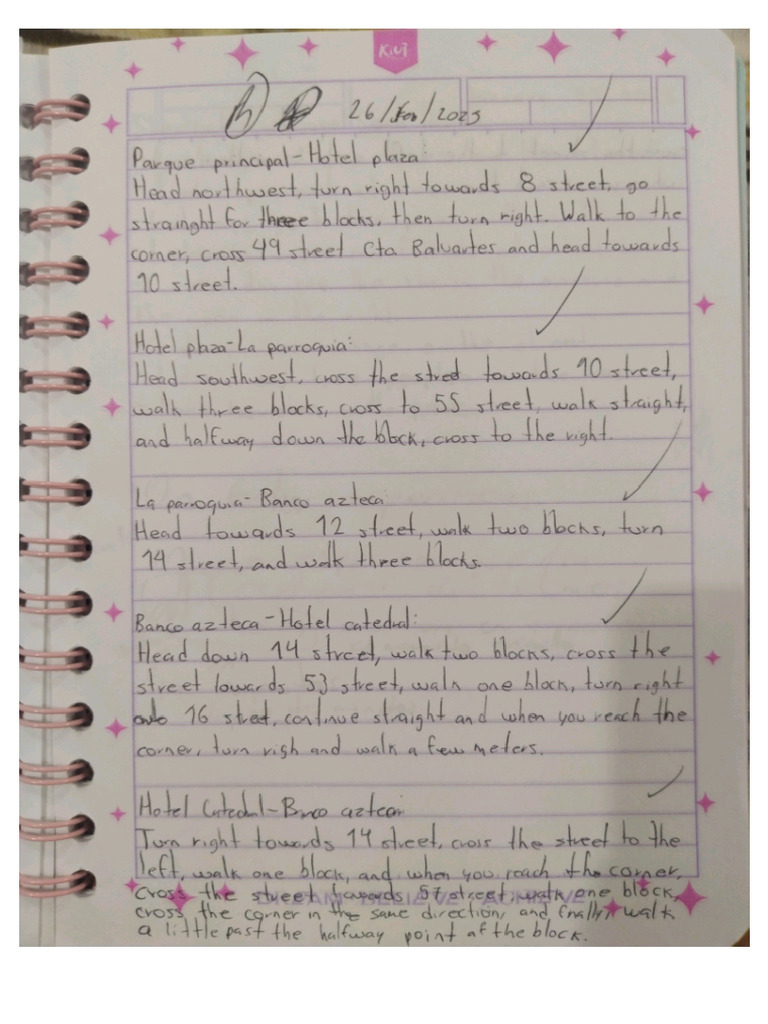 KIVI
26/ /2025
Parque principal-Hotel plaza:
Head northwest, turn right towards 8 street, go
strainght for three blocks, then turn right. Walk to the
corner, cross 49 street Cta Baluartes and head towards
10 street.
Hotel plaza-La parroquia:
Head southwest, cross the stred towards 10 street,
walk three blocks, cross to 55 street, walk straight,
and halfway down the block, cross to the right.
La parroquia-Banco azteca:
Head towards 12 street, walk two blocks, turn
14 street, and walk three blocks.
Banco azteca-Hotel catedral:
Head down 14 street, walk two blocks, cross the
street towards 53 street, walk one block, turn right
16 street, continue straight and when you reach the
corner, turn righ and walk a few meters.
Hotel Catedral-Bnco azteca:
Turn right towards 14 street, cross the street to the
left, walk one block, and when you reach the corner,
cross the street towards 57 street, walk one block,
cross the corner in the same direction, and fnally, walk
a little past the halfway point of the block.